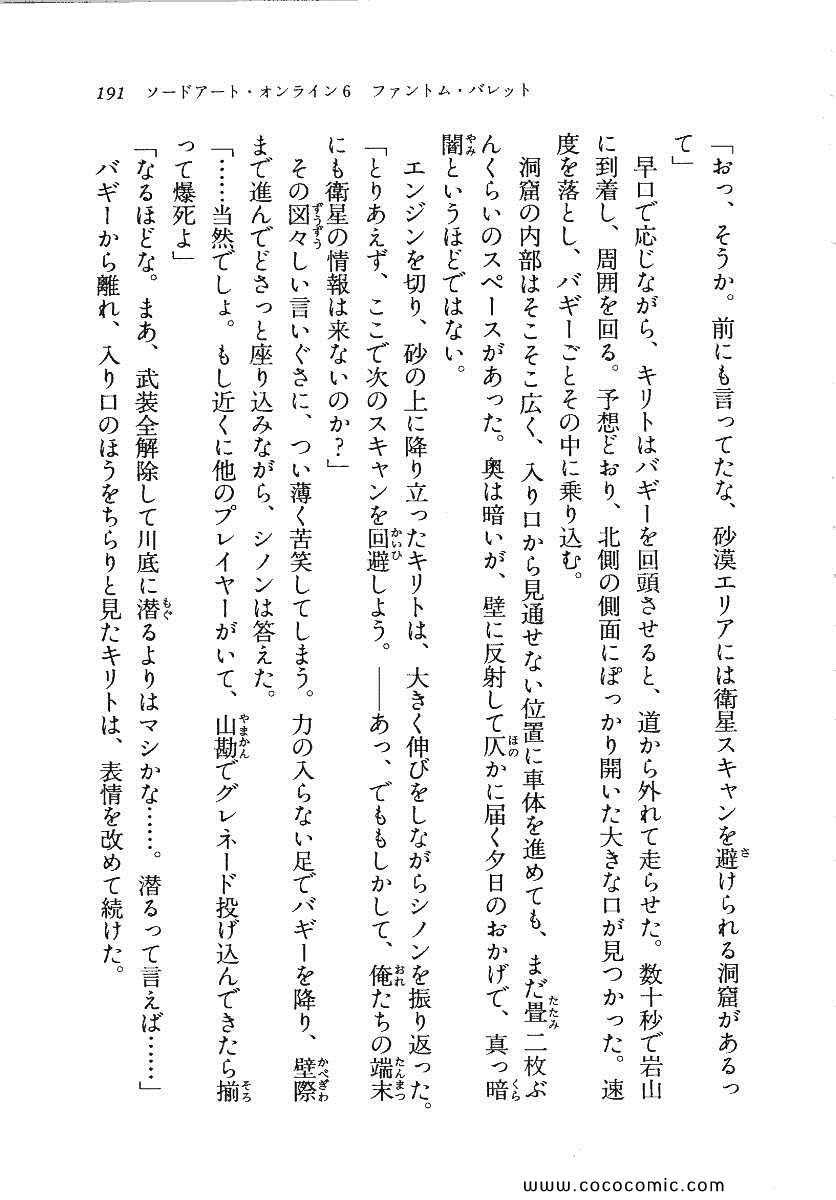 191　ソードアート・オンライン6　ファントム・バレット
「おっ、そうか。前にも言ってたな、砂漠エリアには衛星スキャンを避けられる洞窟があるっ
て」
　早口で応じながら、キリトはバギーを回頭させると、道から外れて走らせた。数十秒で岩山
に到着し、周囲を回る。予想どおり、北側の側面にぽっかり開いた大きな口が見つかった。速
度を落とし、バギーごとその中に乗り込む。
　洞窟の内部はそこそこ広く、入り口から見通せない位置に車体を進めても、まだ畳二枚ぶ
んくらいのスペースがあった。奥は暗いが、壁に反射して仄かに届く夕日のおかげで、真っ暗
闇というほどではない。
　エンジンを切り、砂の上に降り立ったキリトは、大きく伸びをしながらシノンを振り返った。
「とりあえず、ここで次のスキャンを回避しよう。――あっ、でももしかして、俺たちの端末
にも衛星の情報は来ないのか？」
　その図々しい言いぐさに、つい薄く苦笑してしまう。力の入らない足でバギーを降り、壁際
まで進んでどさっと座り込みながら、シノンは答えた。
「……当然でしょ。もし近くに他のプレイヤーがいて、山勘でグレネード投げ込んできたら揃
って爆死よ」
「なるほどな。まあ、武装全解除して川底に潜るよりはマシかな……。潜るって言えば……」
　バギーから離れ、入り口のほうをちらりと見たキリトは、表情を改めて続けた。
www.cococomic.com